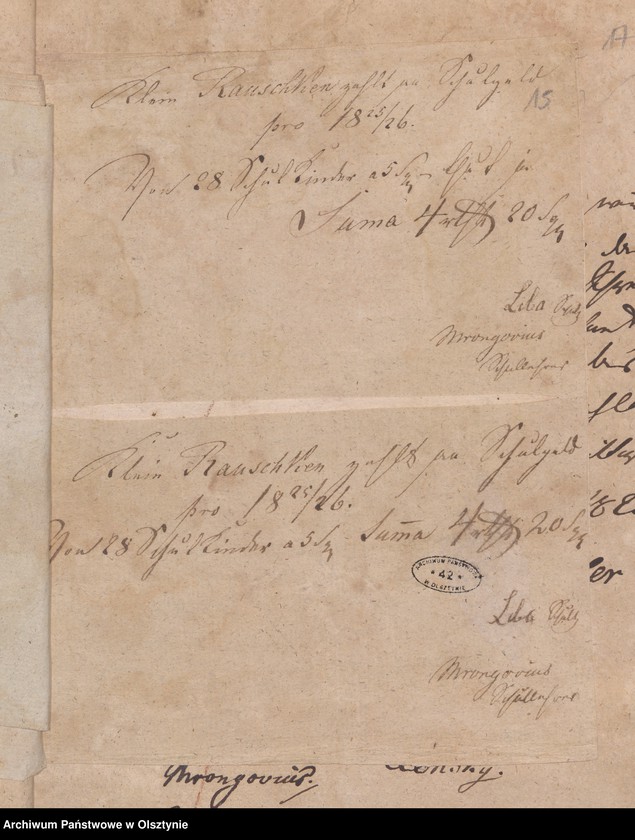 17
Klein Rauschken zahlt an Schulgeld
15
pro 18 25/26.
Von 28 Schul Kinder a 5 Sg
Suma 4 rthl 20 Sg
Liba Schulz
Mrongovius
Schullehrer
Klein Rauschken zahlt an Schulgeld
pro 18 25/26.
Von 28 Schul Kinder a 5 Sg Suma 4 rthl 20 Sg
ARCHIWUM PAŃSTWOWE
* 42 *
W OLSZTYNIE
Liba Schulz
Mrongovius
Schullehrer
Mrongovius.
Archiwum Państwowe w Olsztynie